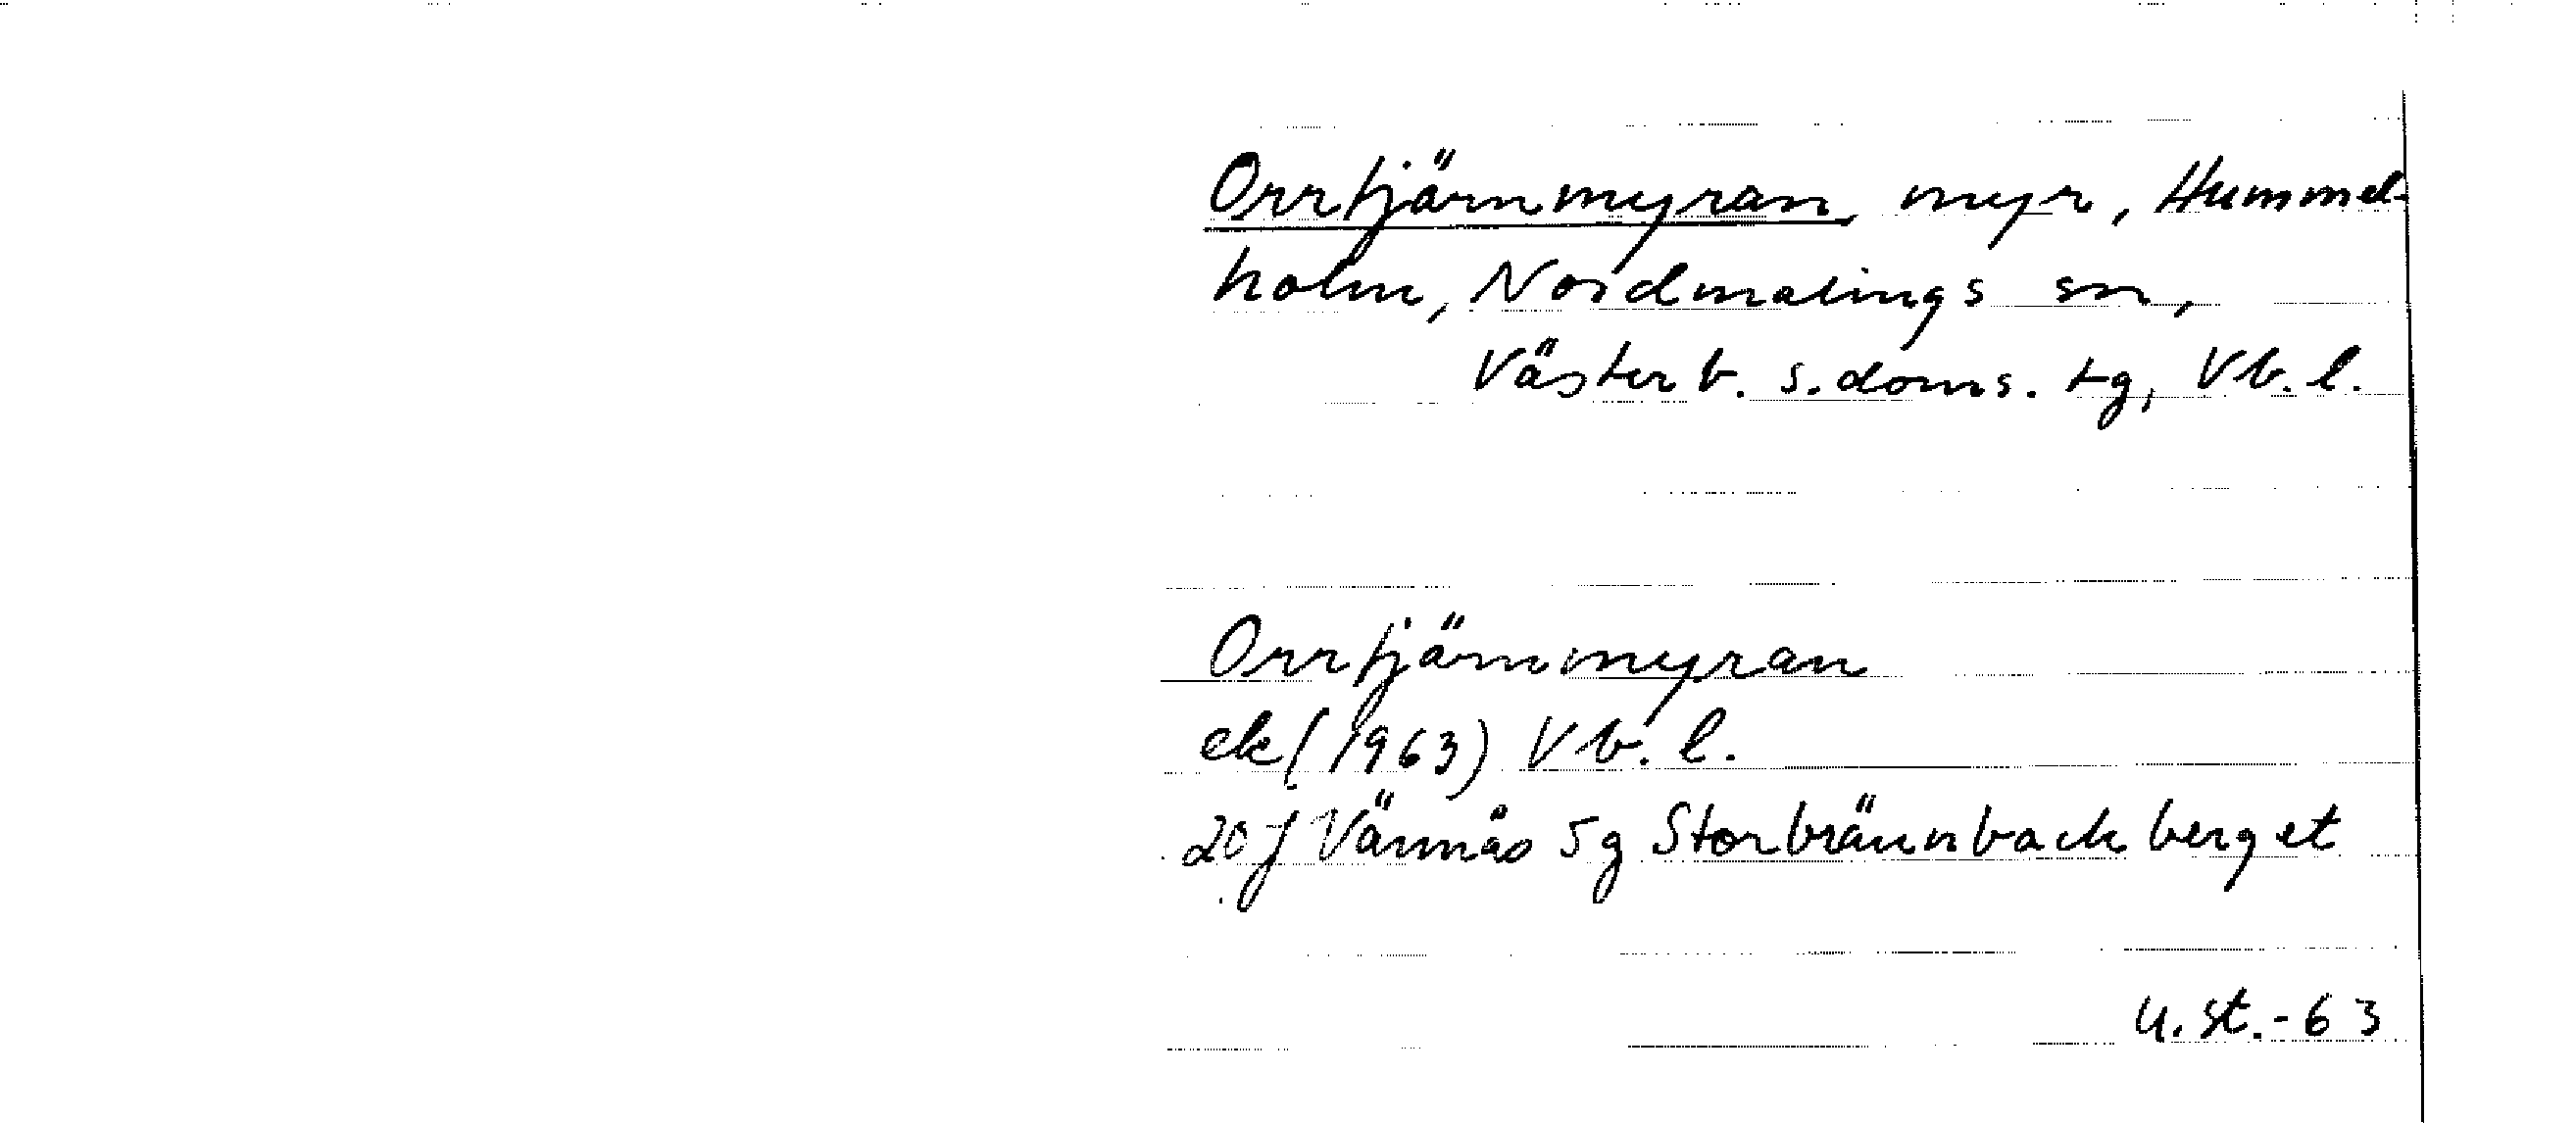 Orrtjärnmyran, myr, Hummel-
holm, Nordmalings sn,
Västerb. s. doms. tg, Vb. l.
Orrtjärnmyran
ek (1963) Vb. l.
20 J Vännäs 5 g Storbrännbackberget
U. St. - 63